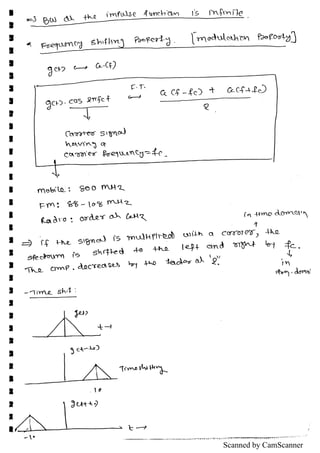 => BW of the impulse function is infinite.
* Frequency Shifting Property. [modulation Property]
g(t) ↔ G(f)
F.T.
g(t). cos 2πfct ↔ G(f-fc) + G(f+fc)
2
Carrier signal
having a
carrier frequency = fc.
mobile: 800 MHz
Fm: 88-108 MHz
Radio: order of GHz
in time domain
=> if the signal is multiplied with a carrier, the
spectrum is shifted to the left and right by fc.
The amp. decreases by the factor of "2".
in
- Time shift:
g(t)
t→
g(t-to)
Timeshifting
to
g(t+to)
-to
t→
Scanned by CamScanner